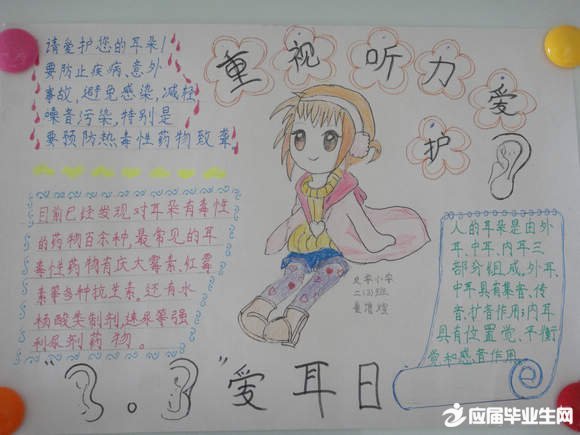 请爱护您的耳朵!
要防止疾病、意外
事故,避免感染,减轻
噪音污染,特别是
要预防热毒性药物致聋
重视听力
爱护
目前已经发现对耳朵有毒性
的药物百余种,最常见的耳
毒性药物有庆大霉素、红霉
素等多种抗生素,还有水
杨酸类制剂,速尿等强
利尿剂药物。
二(3)班
人的耳朵是由外
耳、中耳、内耳三
部分组成,外耳、
中耳具有集音、传
音、扩音作用;内耳
具有位置觉、平衡
觉和感音作用
"3.3"爱耳日
应届毕业生网
YJBYS.COM